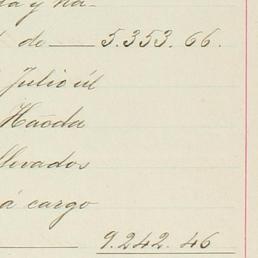 y ha-
de — 5.353.66.
Julio úl
Hacda
llevados
á cargo
9.242.46